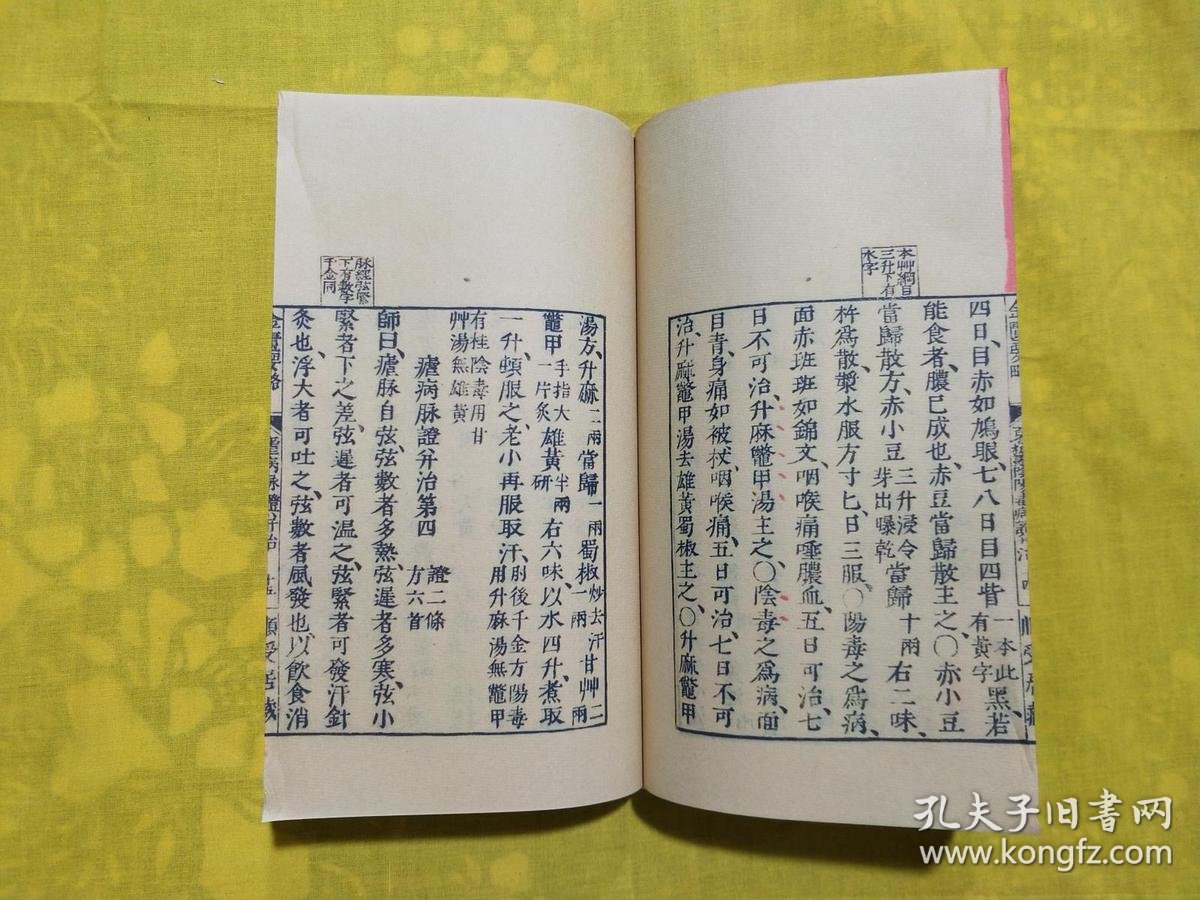 本艸綱目
三升下有
水字
四日、目赤如鳩眼、七八日目四眥一本此有黃字黑、若
能食者、膿已成也、赤豆當歸散主之、〇赤小豆
當歸散方、赤小豆三升浸令芽出曝乾當歸十兩右二味、
杵爲散、漿水服方寸匕、日三服、〇陽毒之爲病、
面赤班班如錦文、咽喉痛唾膿血、五日可治、七
日不可治、升麻鼈甲湯主之、〇陰毒之爲病、面
目青、身痛如被杖、咽喉痛、五日可治、七日不可
治、升麻鼈甲湯去雄黃蜀椒主之、〇升麻鼈甲
脉經弦緊
下有數字
千金同
湯方、升麻二兩當歸一兩蜀椒炒去汗一兩甘艸二兩
鼈甲手指大一片炙雄黃半兩研右六味、以水四升、煮取
一升、頓服之、老小再服取汗、肘後千金方陽毒用升麻湯無鼈甲
有桂陰毒用甘艸湯無雄黃
瘧病脉證幷治第四 證二條 方六首
師曰、瘧脉自弦、弦數者多熱、弦遲者多寒、弦小
緊者下之差、弦遲者可温之、弦緊者可發汗針
灸也、浮大者可吐之、弦數者風發也、以飲食消
金匱要略 瘧病脉證幷治
孔夫子旧书网
www.kongfz.com